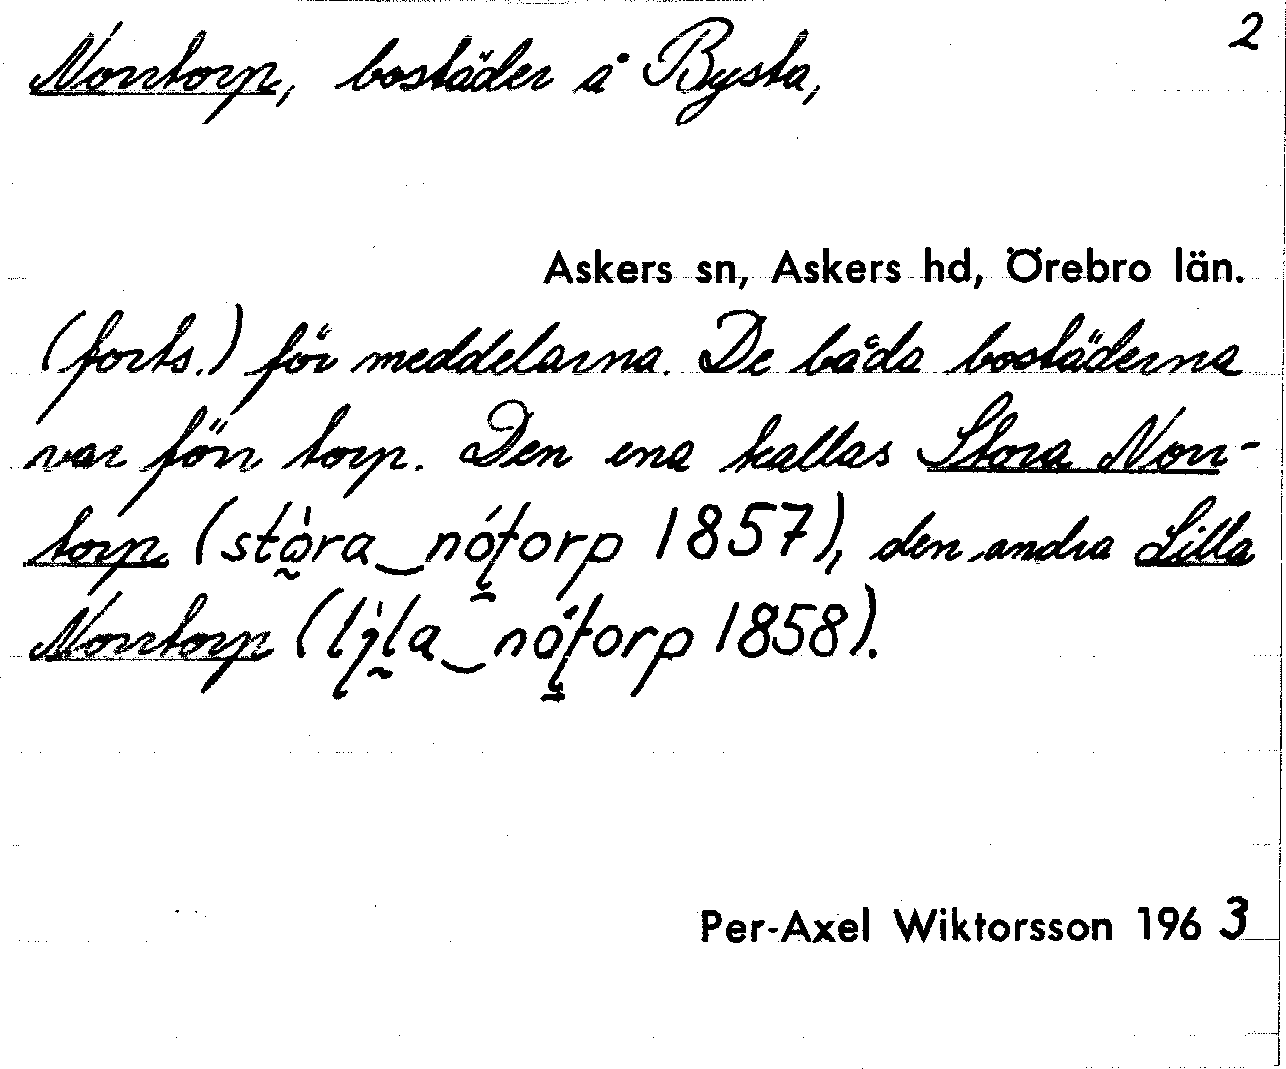 2
Norrtorp, bostäder å Bysta,
Askers sn, Askers hd, Örebro län.
(forts.) för meddelarna. De båda bostäderna
var förr torp. Den ena kallas Stora Norr-
torp (stòra‿nótorp 1857), den andra Lilla
Norrtorp (lìla‿nótorp 1858).
Per-Axel Wiktorsson 1963